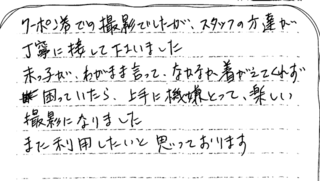 クーポン券での撮影でしたが、スタッフの方達が
丁寧に接して下さいました
末っ子が、わがまま言って、なかなか着がえてくれず
困っていたら、上手に機嫌とって、楽しい
撮影になりました
また利用したいと思っております